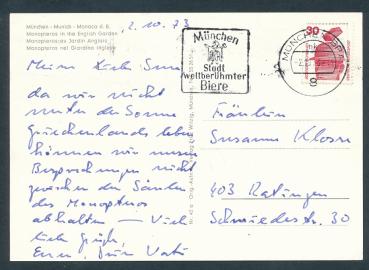 München - Munich - Monaco d. B.
Monopteros in the English Garden
Monopteros au Jardin Anglais
Monopteros nel Giardino Inglese
2.10.73
München
Stadt
weltberühmter
Biere
30
MÜNCHEN
8
Meine liebe Susi
da wir nicht
unter der Sonne
Griechenlands leben
können wir unsere
Besprechungen nicht
zwischen den Säulen
des Monopteros
abhalten - Viele
liebe Grüße,
Euer, Dein Vati
Fräulein
Susanne Klosse
403 Ratingen
Schmiedestr. 30